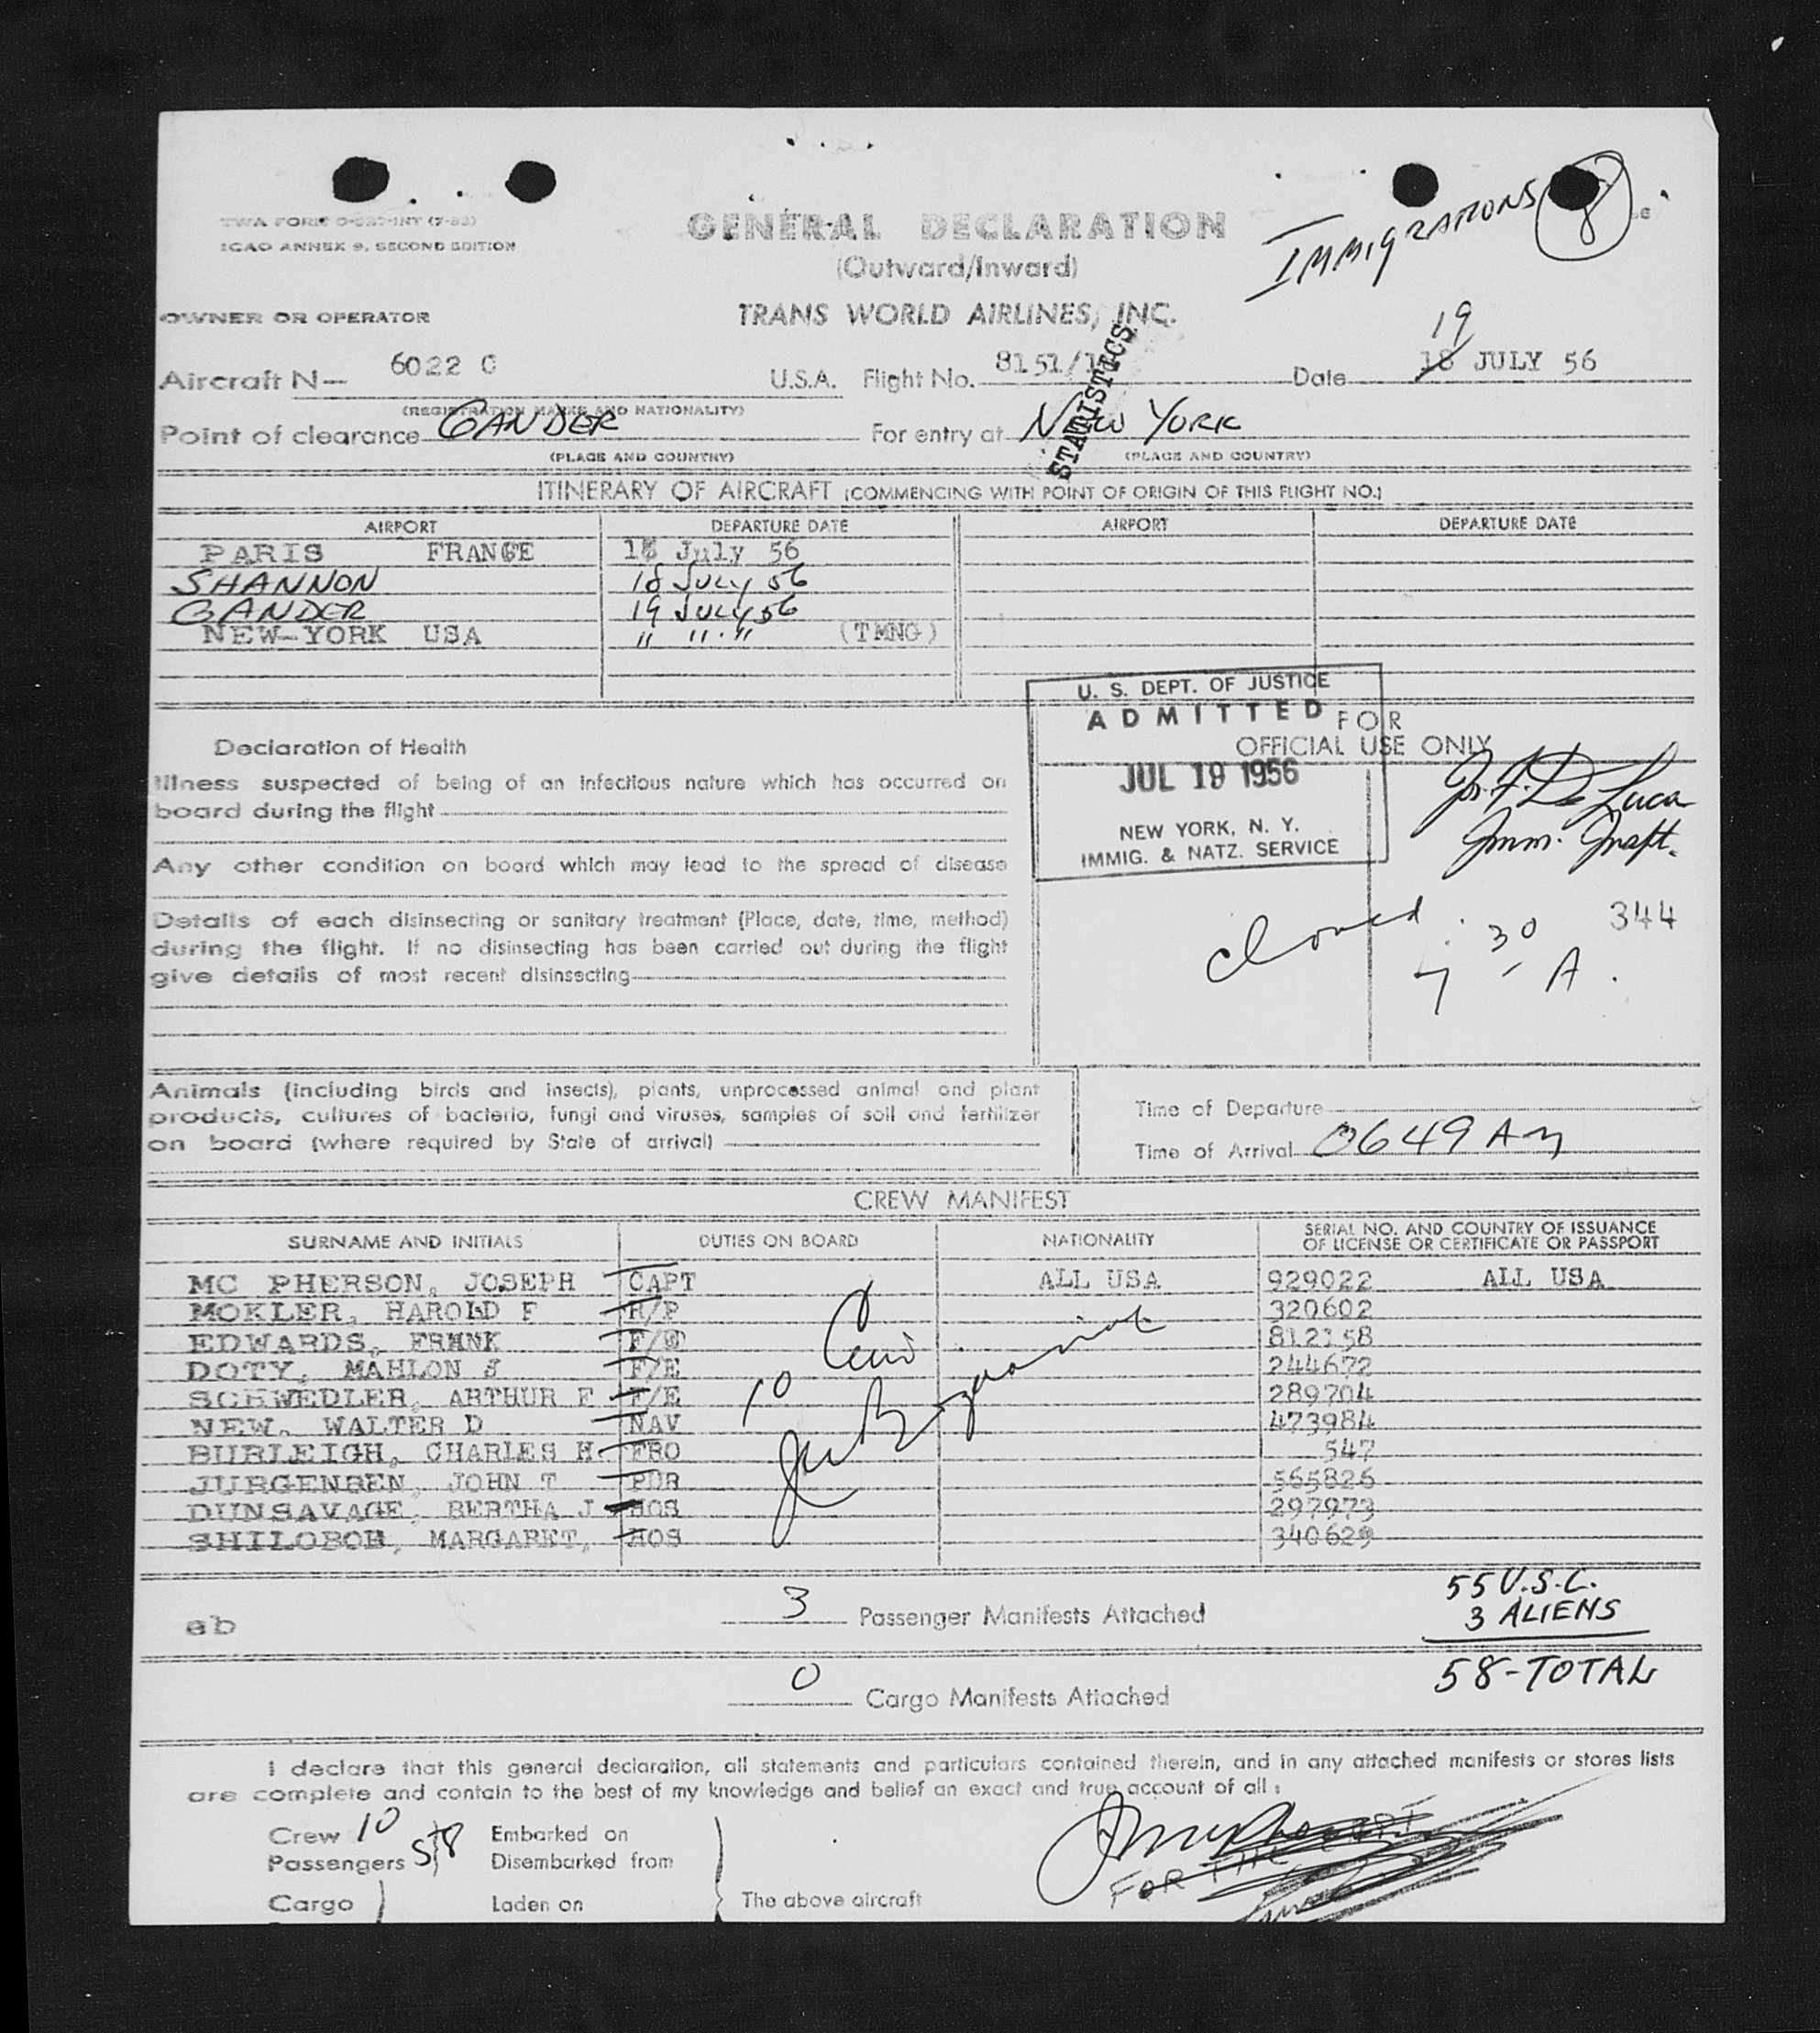 TWA FORM
ICAO ANNEX 9, SECOND EDITION
GENERAL DECLARATION
(Outward/Inward)
IMMIGRATIONS 8
OWNER OR OPERATOR
TRANS WORLD AIRLINES, INC.
STATISTICS
19
Aircraft N— 6022 C U.S.A. Flight No. 8151/ Date 18 JULY 56
(REGISTRATION MARKS AND NATIONALITY)
Point of clearance GANDER For entry at NEW YORK
(PLACE AND COUNTRY) (PLACE AND COUNTRY)
ITINERARY OF AIRCRAFT (COMMENCING WITH POINT OF ORIGIN OF THIS FLIGHT NO.)
AIRPORT DEPARTURE DATE AIRPORT DEPARTURE DATE
PARIS FRANCE 18 July 56
SHANNON 18 JULY 56
GANDER 19 JULY 56
NEW-YORK USA " " . " (TMNG)
U. S. DEPT. OF JUSTICE
ADMITTED
JUL 19 1956
NEW YORK, N. Y.
IMMIG. & NATZ. SERVICE
FOR
OFFICIAL USE ONLY
Jos. F. De Luca
Imm. Inspt.
closed 7:30 A.
344
Declaration of Health
Illness suspected of being of an infectious nature which has occurred on
board during the flight
Any other condition on board which may lead to the spread of disease
Details of each disinsecting or sanitary treatment (Place, date, time, method)
during the flight. If no disinsecting has been carried out during the flight
give details of most recent disinsecting
Animals (including birds and insects), plants, unprocessed animal and plant
products, cultures of bacteria, fungi and viruses, samples of soil and fertilizer
on board (where required by State of arrival)
Time of Departure
Time of Arrival 0649 AM
CREW MANIFEST
SURNAME AND INITIALS DUTIES ON BOARD NATIONALITY SERIAL NO. AND COUNTRY OF ISSUANCE
OF LICENSE OR CERTIFICATE OR PASSPORT
MC PHERSON, JOSEPH CAPT ALL USA 929022 ALL USA
MOKLER, HAROLD F R/P 320602
EDWARDS, FRANK F/O 812158
DOTY, MAHLON J F/E 244672
SCHWEDLER, ARTHUR F F/E 289704
NEW, WALTER D NAV 473984
BURLEIGH, CHARLES H. FRO 547
JURGENSEN, JOHN T PUR 565826
DUNSAVAGE, BERTHA J HOS 297973
SHILOBOB, MARGARET, HOS 340629
10
ab
3 Passenger Manifests Attached
55 U.S.C.
3 ALIENS
58-TOTAL
0 Cargo Manifests Attached
I declare that this general declaration, all statements and particulars contained therein, and in any attached manifests or stores lists
are complete and contain to the best of my knowledge and belief an exact and true account of all :
Crew 10 Embarked on
Passengers 58 Disembarked from
Cargo Laden on The above aircraft
FOR THE